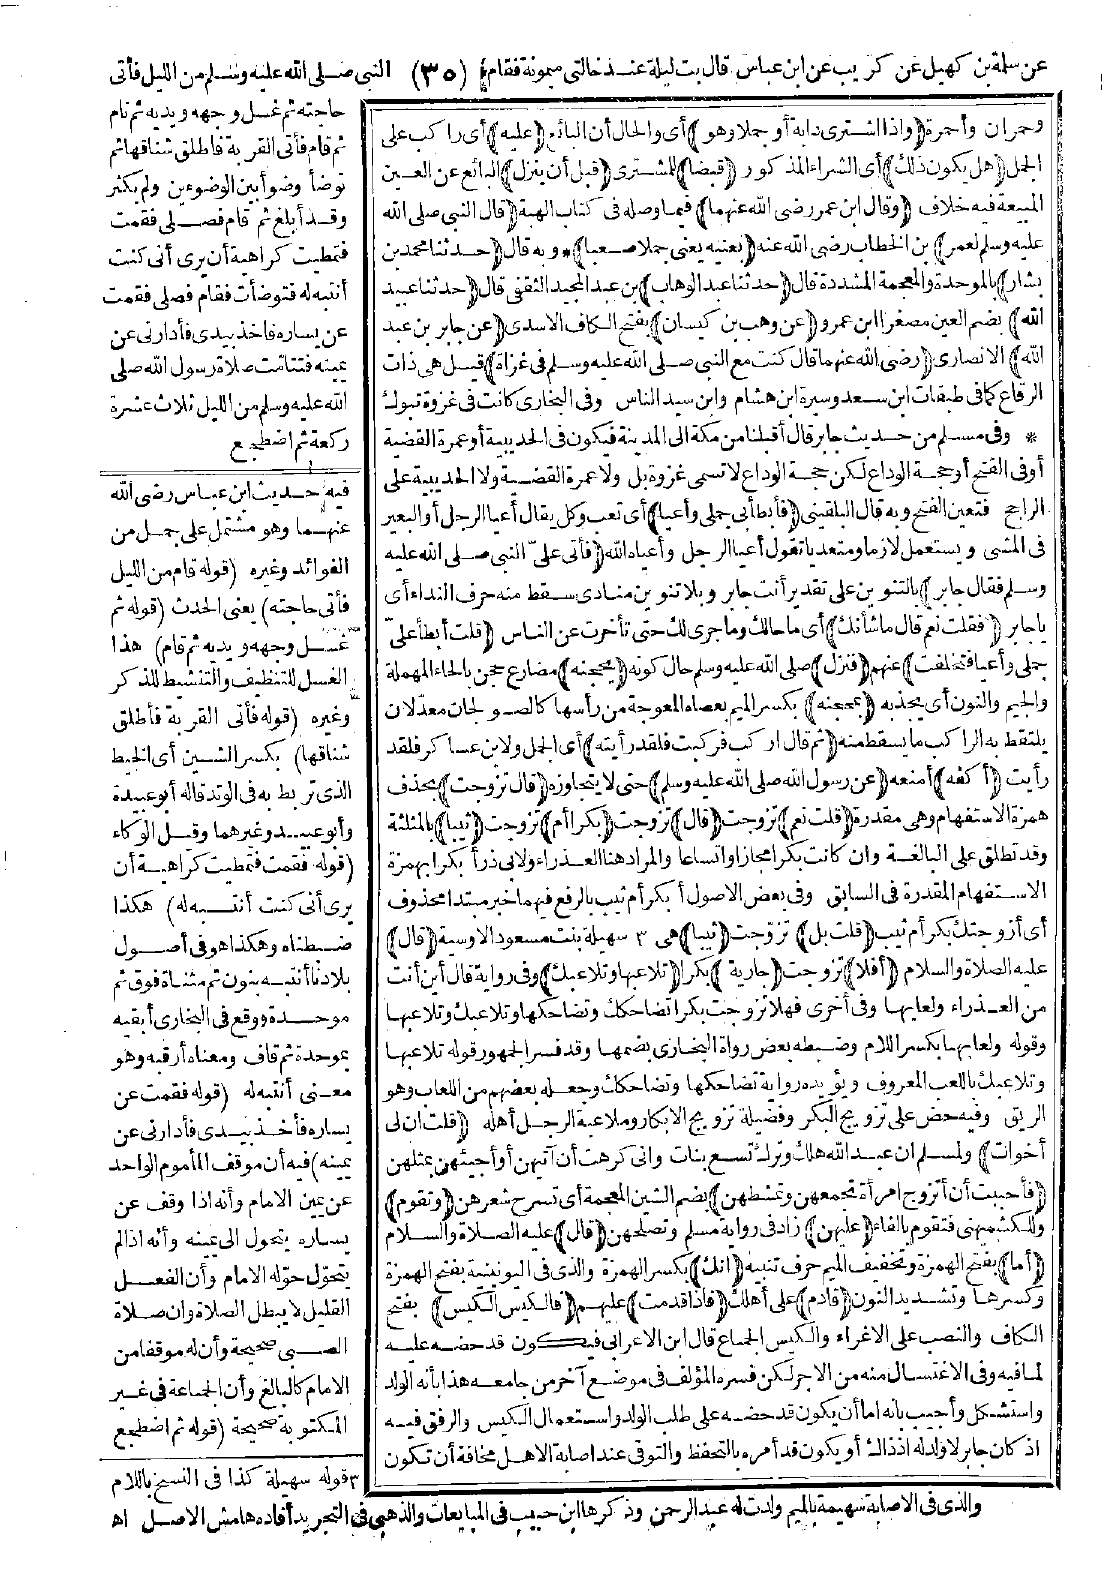 عن سلمة بن كهيل عن كريب عن ابن عباس قال بت ليلة عند خالتي ميمونة فقام (٣٥) النبي صلى الله عليه وسلم من الليل فأتى
حاجته ثم غسل وجهه ويديه ثم نام
ثم قام فأتى القربة فاطلق شناقها ثم
توضأ وضوأ بين الوضوءين ولم يكثر
وقد أبلغ ثم قام فصلى فقمت
فتمطيت كراهية أن يرى أنى كنت
أنتبه له فتوضأت فقام فصلى فقمت
عن يساره فاخذ بيدى فأدارنى عن
يمينه فتتامت صلاة رسول الله صلى
الله عليه وسلم من الليل ثلاث عشرة
ركعة ثم اضطجع
وحمران وأحمرة (واذا اشترى دابة أو جملا وهو) أى والحال أن البائع (عليه) أى راكب على
الجمل (هل يكون ذلك) أى الشراء المذكور (قبضا) للمشترى (قبل أن ينزل) البائع عن العين
المبيعة فيه خلاف (وقال ابن عمر رضى الله عنهما) فيما وصله فى كتاب الهبة (قال النبى صلى الله
عليه وسلم لعمر) بن الخطاب رضى الله عنه (بعنيه يعنى جملا صعبا) * وبه قال (حدثنا محمد بن
بشار) بالموحدة والمعجمة المشددة قال (حدثنا عبد الوهاب) بن عبد المجيد الثقفى قال (حدثنا عبيد
الله) بضم العين مصغرا ابن عمرو (عن وهب بن كيسان) بفتح الكاف الاسدى (عن جابر بن عبد
الله) الانصارى (رضى الله عنهما قال كنت مع النبى صلى الله عليه وسلم فى غزاة) قيل هى ذات
الرقاع كما فى طبقات ابن سعد وسيرة ابن هشام وابن سيد الناس وفى البخارى كانت فى غزوة تبوك
* وفى مسلم من حديث جابر قال أقبلنا من مكة الى المدينة فيكون فى الحديبية أو عمرة القضية
أو فى الفتح أو حجة الوداع لكن حجة الوداع لا تسمى غزوة بل ولا عمرة القضية ولا الحديبية على
الراجح فتعين الفتح وبه قال البلقينى (فأبطأ بى جملى وأعيا) أى تعب وكل يقال أعيا الرجل أو البعير
فى المشى ويستعمل لازما ومتعديا تقول أعيا الرجل وأعياه الله (فأتى علىّ النبى صلى الله عليه
وسلم فقال جابر) بالتنوين على تقدير أنت جابر وبلا تنوين منادى سقط منه حرف النداء أى
ياجابر (فقلت نعم قال ما شأنك) أى ما حالك وما جرى لك حتى تأخرت عن الناس (قلت أبطأ علىّ
جملى وأعيا فتخلفت) عنهم (فنزل) صلى الله عليه وسلم حال كونه (يحجنه) مضارع حجن بالحاء المهملة
والجيم والنون أى يجذبه (بمحجنه) بكسر الميم بعصاه المعوجة من رأسها كالصولجان معدلان
يلتقط به الراكب ما يسقط منه (ثم قال اركب فركبت فلقد رأيته) أى الجمل ولابن عساكر فلقد
رأيت (أكفه) أمنعه (عن رسول الله صلى الله عليه وسلم) حتى لا يتجاوزه (قال تزوجت) بحذف
همزة الاستفهام وهى مقدرة (قلت نعم) تزوجت (قال) تزوجت (بكرا أم) تزوجت (ثيبا) بالمثلثة
وقد تطلق على البالغة وان كانت بكرا مجازا واتساعا والمراد هنا العذراء ولابى ذر أبكرا بهمزة
الاستفهام المقدرة فى السابق وفى بعض الاصول أبكر أم ثيب بالرفع فيهما خبر مبتدا محذوف
أى أزوجتك بكر أم ثيب (قلت بل) تزوجت (ثيبا) هى ٣ سهيلة بنت مسعود الاوسية (قال)
عليه الصلاة والسلام (أفلا) تزوجت (جارية) بكرا (تلاعبها وتلاعبك) وفى رواية قال أين أنت
من العذراء ولعابها وفى أخرى فهلا تزوجت بكرا تضاحكك وتضاحكها وتلاعبك وتلاعبها
وقوله ولعابها بكسر اللام وضبطه بعض رواة البخارى بضمها وقد فسر الجمهور قوله تلاعبها
وتلاعبك باللعب المعروف ويؤيده رواية تضاحكها وتضاحكك وجعله بعضهم من اللعاب وهو
الريق وفيه حض على تزويج البكر وفضيلة تزويج الابكار وملاعبة الرجل أهله (قلت ان لى
أخوات) ولمسلم ان عبد الله هلك وترك تسع بنات وانى كرهت أن آتيهن أو أجيئهن بمثلهن
(فأحببت أن أتزوج امرأة تجمعهن وتمشطهن) بضم الشين المعجمة أى تسرح شعرهن (وتقوم)
وللكشميهنى فتقوم بالفاء (عليهن) زاد فى رواية مسلم وتصلحهن (قال) عليه الصلاة والسلام
(أما) بفتح الهمزة وتخفيف الميم حرف تنبيه (انك) بكسر الهمزة والذى فى اليونينية بفتح الهمزة
وكسرها وتشديد النون (قادم) على أهلك (فاذا قدمت) عليهم (فالكيس الكيس) بفتح
الكاف والنصب على الاغراء والكيس الجماع قال ابن الاعرابى فيكون قد حضه عليه
لما فيه وفى الاغتسال منه من الاجر لكن فسره المؤلف فى موضع آخر من جامعه هذا بأنه الولد
واستشكل وأجيب بانه اما أن يكون قد حضه على طلب الولد واستعمال الكيس والرفق فيه
اذ كان جابر لا ولد له اذ ذاك أو يكون قد أمره بالتحفظ والتوقى عند اصابة الاهل مخافة أن تكون
فيه حديث ابن عباس رضى الله
عنهما وهو مشتمل على جمل من
الفوائد وغيره (قوله قام من الليل
فأتى حاجته) يعنى الحدث (قوله ثم
غسل وجهه ويديه ثم قام) هذا
الغسل للتنظيف والتنشيط للذكر
وغيره (قوله فأتى القربة فأطلق
شناقها) بكسر الشين أى الخيط
الذى تربط به فى الوتد قاله أبو عبيدة
وأبو عبيد وغيرهما وقيل الوكاء
(قوله فقمت فتمطيت كراهية أن
يرى أنى كنت أنتبه له) هكذا
ضبطناه وهكذا هو فى أصول
بلادنا أنتبه بنون ثم مثناة فوق ثم
موحدة ووقع فى البخارى أبقيه
بموحدة ثم قاف ومعناه أرقبه وهو
معنى أنتبه له (قوله فقمت عن
يساره فأخذ بيدى فأدارنى عن
يمينه) فيه أن موقف المأموم الواحد
عن يمين الامام وأنه اذا وقف عن
يساره يتحول الى يمينه وأنه اذا لم
يتحول حوله الامام وأن الفعل
القليل لا يبطل الصلاة وان صلاة
الصبى صحيحة وأن له موقفا من
الامام كالبالغ وأن الجماعة فى غير
المكتوبة صحيحة (قوله ثم اضطجع
٣ قوله سهيلة كذا فى النسخ باللام
والذى فى الاصابة سهيمة بالميم ولدت له عبد الرحمن وذكرها ابن حبيب فى المبايعات والذهبى فى التجريد أفاده هامش الاصل اه